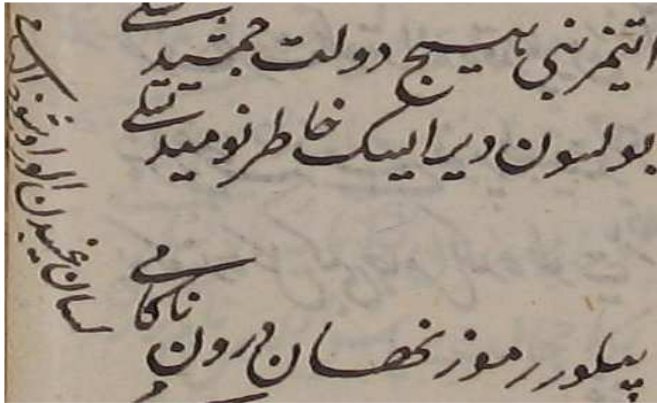 ایتمز بنی هیچ دولت جمشید تسلی
بولسون دیر ایسك خاطر نومید تسلی
بیلور رموز نهان درون ناکامی
لسان الور او شوخ